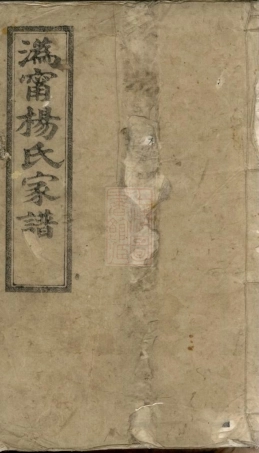 溈甯楊氏家譜